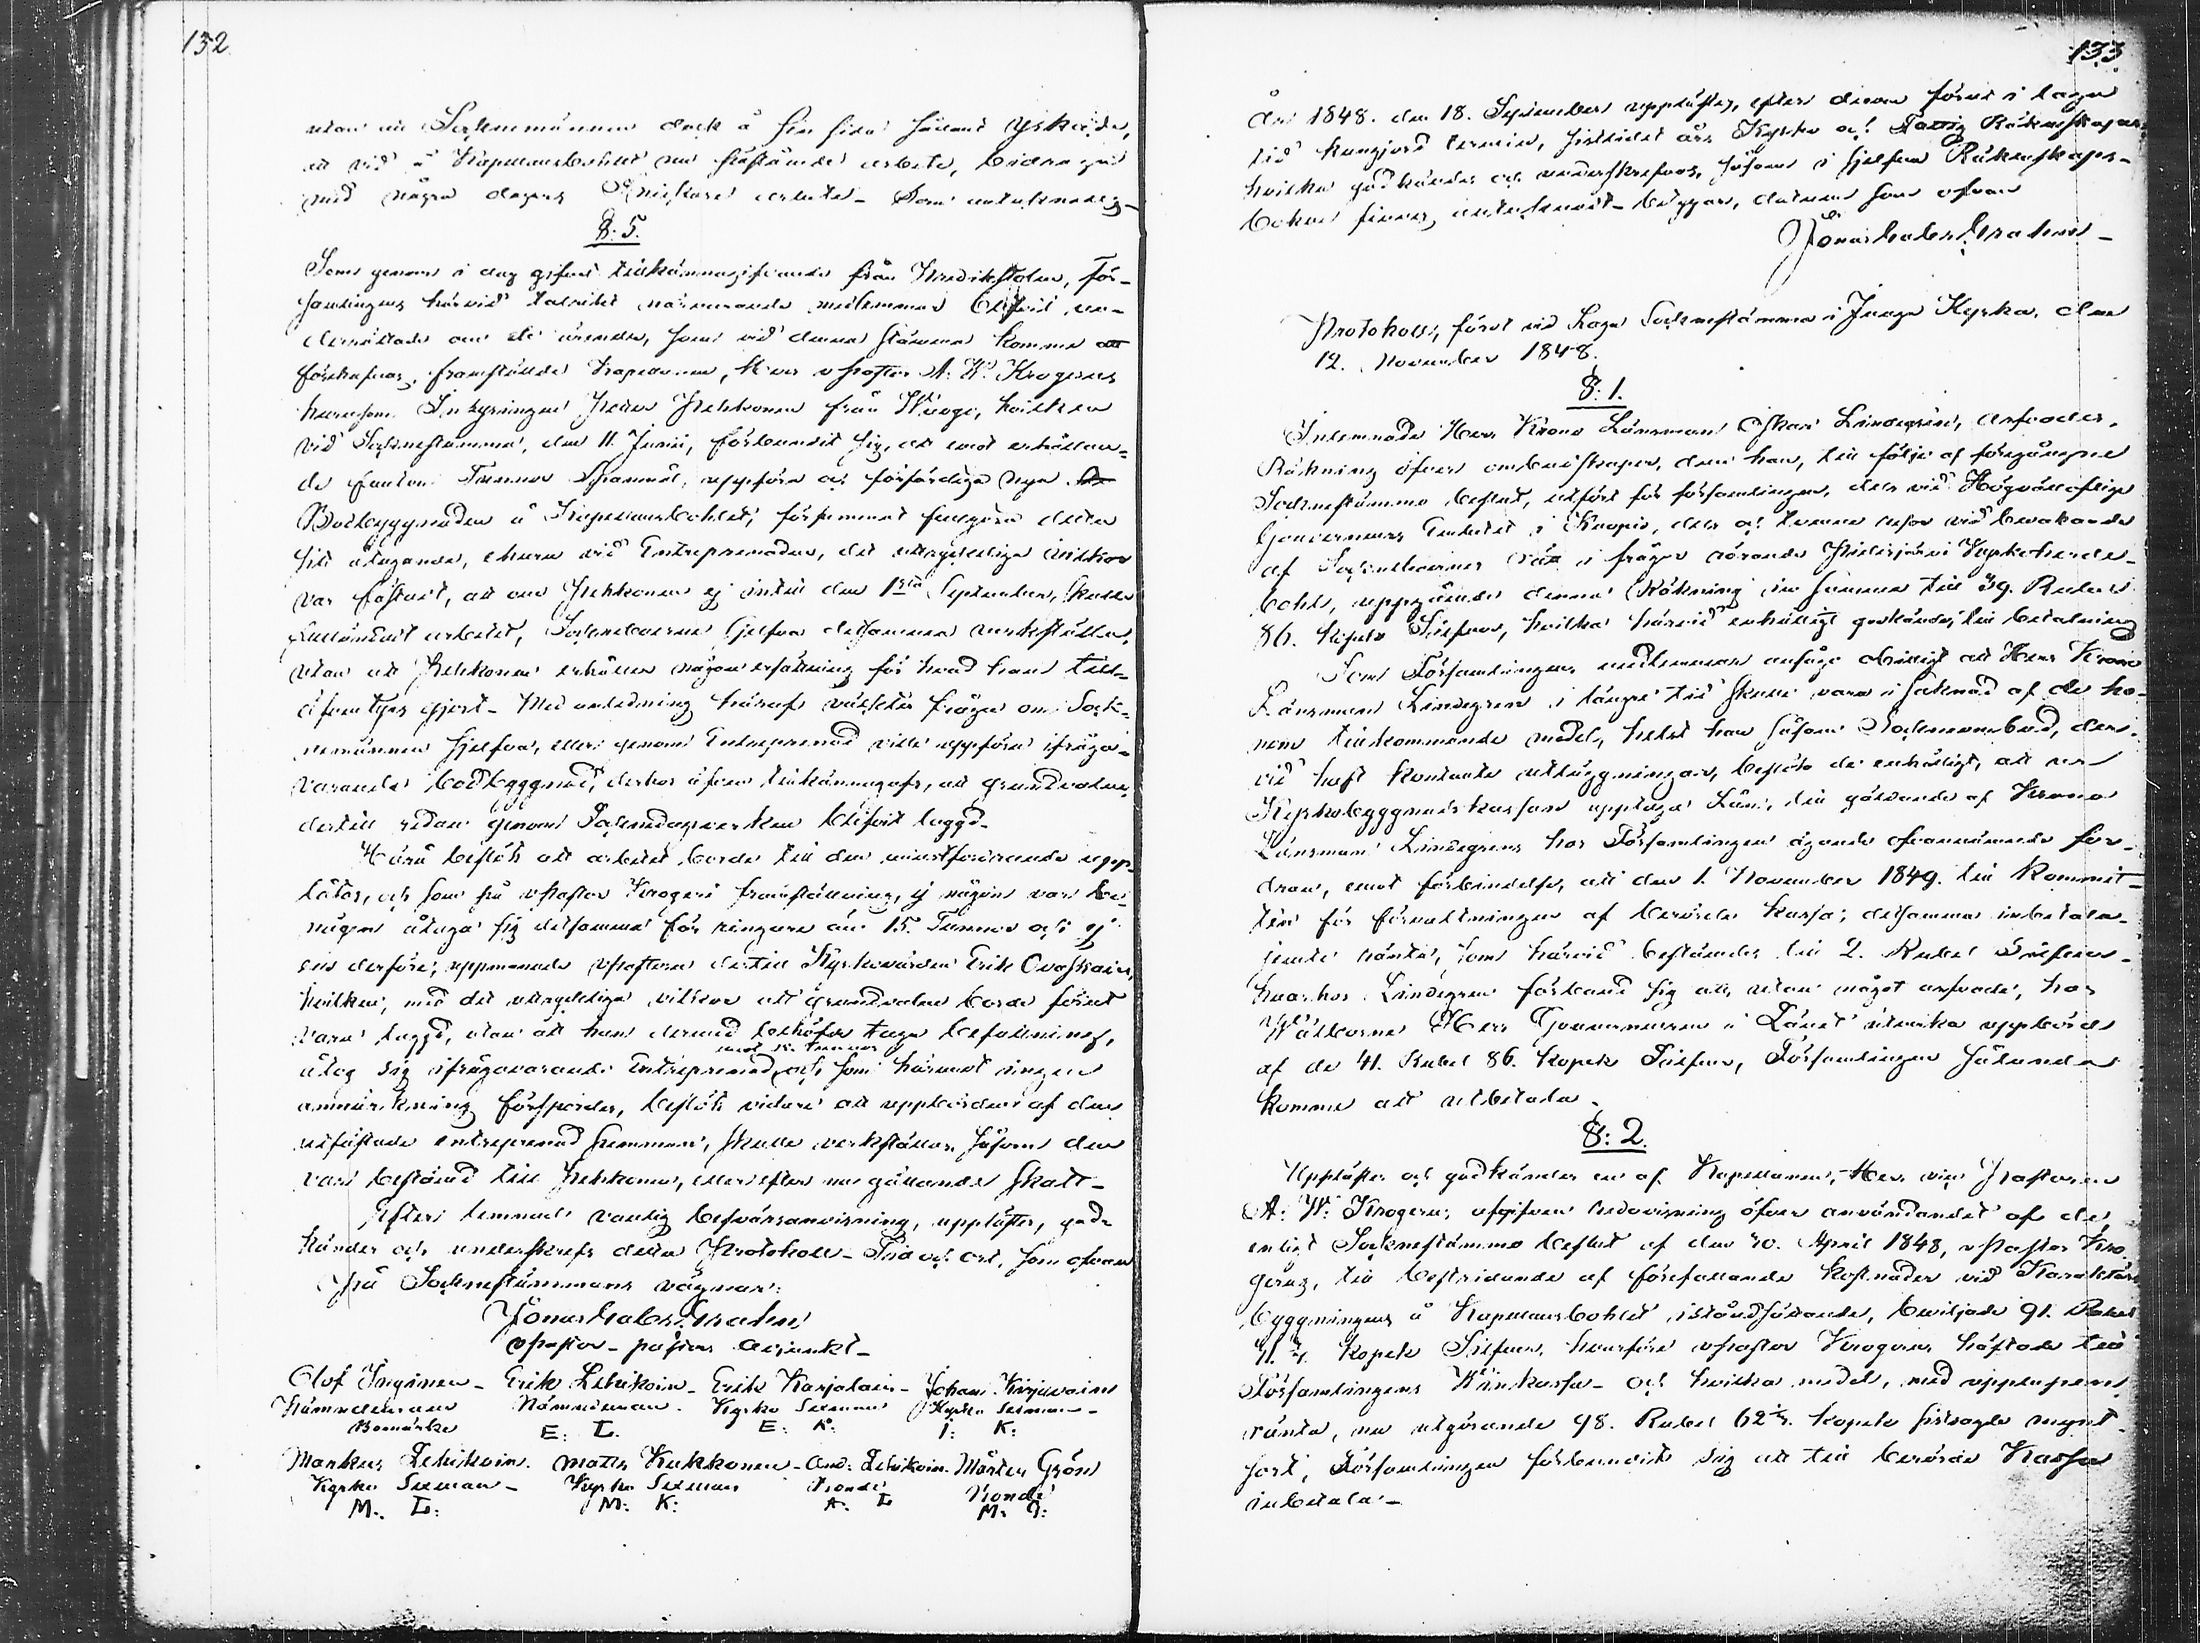 132
utan att Sockenmännen dock å sin sida härmed yrkade,
att vid å Kapellansbohlet nu förestående arbete, bidraga
med några dagars arbete
§: 5.
Som genom i dag gifvet tillkännagifvande från Predikstolen, För-
samlingens härvid talrikt närvarande medlemmar blifvit un-
derrättade om de ärender, som vid denna stämma komma att
förehafvas, framstälde Kapellanen, Herr vPastor A. W. Krogerus
hurusom Inhysingen Petter Pekkonen från
vid Sockenstämma, den 11. Junii, förbundit sig, att emot erhållan-
de femton Tunnor Spannmål, uppföra och förfärdiga nya
Bodbyggnaden å Kapellansbohlet, försummat fullgöra detta
sitt åtagande, ehuru vid Entreprenaden, det uttryckliga villkor
var fästadt, att om Pekkonen ej intill den 1sta September, skulle
fulländat arbetet, Sockneboerne sjelfva detsamma verkställa,
utan att Pekkonen erhåller någon ersättning för hvad han till-
äfventyrs gjort. Med anledning häraf väcktes frågan om Sock-
nemännen sjelfva, eller genom Entreprenad ville uppföra ifråga-
varande bodbyggnad, derhos äfven tillkännagafs, att grundvalen
dertill redan genom Sockendagsverken blifvit lagd.
Härå beslöts att arbetet borde till den minstfordrande upp-
låtas, och som på vPastor Krogeri framställning, ej någon var be-
nägen åtaga sig detsamma för ringare än 15. Tunnor och ej
ens derföre, uppmanade vPastorn dertill Kyrkovärden Erik Ovaskain,
hvilken, med det uttryckliga vilkor att grundvalen borde förut
vara laggd, utan att han dermed behöfver taga befattning,
emot 15. Tunnor
åtog sig ifrågavarande Entreprenad, och som häremot ingen
anmärkning förspordes, beslöts vidare att uppbörden af den
utfästade entreprenad summan, skulle verkställas såsom den
var bestämd till Pekkonen, eller efter nu gällande skatt.
Efter lemnad vanlig besvärsanvisning, upplästes, god-
kändes och underskrefs detta Protokoll. Tid och ort, som ofvan
På Sockenstämmans vägnar:
vPastor
Olof Inginen - Erik Lehikoin - Erik Karjalain - Johan Kirjavain
Nämndeman Nämndeman. Kyrko Sexman Kyrko Sexman -
Bomärke E: L. E: K: J: K:
Markus Lehikoin. Matts Kukkonen - And: Lehikoin. Mårten Grön
Kyrko Sexman - Kyrko Sexman Bonde Bonde
M: L: M: K: A. L M: G:
133
År 1848. den 18. September upplästes, efter derom förut i laga
tid kungjord termin, sistledet års Kyrko och Fattig Räkenskaper,
hvilka godkändes och underskrefvos, såsom i sjelfva Räkenskaps-
boken finnes, antecknadt. Intygar, datum som ofvan
Protokoll, fördt vid Laga Sockenstämma i Juuga Kyrka, den
12. November 1848.
§: 1.
Inlemnade Herr Krono Länsman Oskar Lindegrén, Arfvodes-
Räkning öfver ombudskapet, den han, till följe af föregångne
Sockenstämmo beslut, utfört för församlingen, dels vid Högvällofliga
Gouverneurs Embetet i Kuopio, dels och tvenne resor vid bevakande
af Sockneboernes rätt i frågor rörande Pielisjärvi Kyrkoherde-
bohl, uppgående denna Räkning in summa till 39. Rubel
86. kopek Silfver, hvilka härvid enhälligt godkändes till betalning
Som Församlingens medlemmar ansågo obilligt att Herr Krono
Länsman Lindegren i längre tid skulle vara i saknad af de ho-
nom tillkommande medel, helst han såsom Sockneombud, der-
vid haft kontanta utläggningar, beslöto de enhälligt, att ur
Kyrkobyggnadskassan upptaga Lån, till gäldande af Krono
Länsman Lindegrens hos Församlingen ägande ofvannämnde for-
dran, emot förbindelse, att den 1. November 1849. till Kommit-
tén för förvaltningen af berörde kassa, detsamma inbetala
jemte ränta, som härvid bestämdes till 2. Rubel Silfver.
hvarhos Lindegren förband sig att, utan något arfvode, hos
Wälborne Herr Gouverneuren i Länet utverka uppbörd
af de 41. Rubel 86. kopek Silfver, Församlingen sålunda
komme att utbetala.
§: 2.
Upplästes och godkändes en af Kapellanen, Herr vice Pastoren
A: W: Krogerus, afgifven redovisning öfver användandet af de
enligt Sockenstämmo beslut af den 30. April 1848, vPastor Kro-
gerus, till bestridande af förefallande kostnader vid Karaktärs
byggningens å Kapellansbohlet iståndsättande, beviljade 91. Rubel
kopek Silfver, hvarföre vPastor Krogerus häftade till
Församlingens Lånkassa - och hvilka medel, med upplupen
ränta, nu utgörande 98. Rubel 62 kopek sistsagde mynt-
sort, Församlingen förbundit sig att till berörde Kassa
inbetala. -